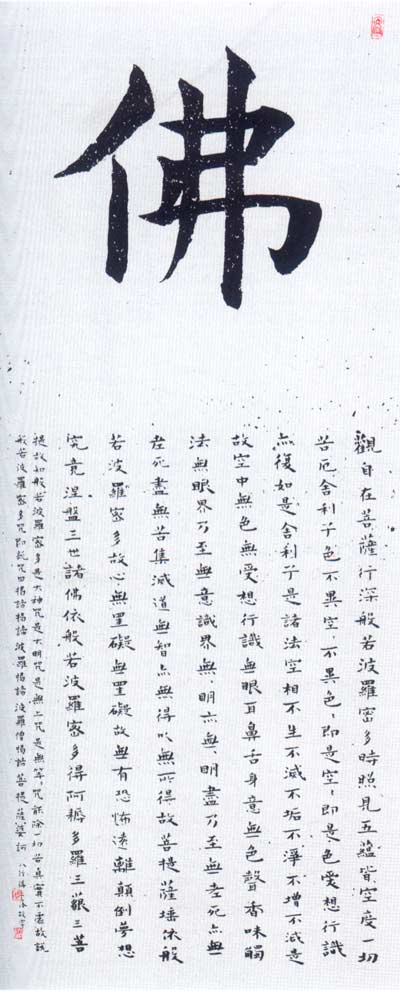 佛
觀自在菩薩行深般若波羅密多時照見五蘊皆空度一切
苦厄舍利子色不異空〻不異色〻即是空〻即是色受想行識
亦復如是舍利子是諸法空相不生不滅不垢不淨不增不減是
故空中無色無受想行識無眼耳鼻舌身意無色聲香味觸
法無眼界乃至無意識界無〻明亦無〻明盡乃至無老死亦無
老死盡無苦集滅道無智亦無得以無所得故菩提薩埵依般
若波羅密多故心無罣礙無罣礙故無有恐怖遠離顛倒夢想
究竟涅盤三世諸佛依般若波羅密多得阿耨多羅三藐三菩
提故知般若波羅密多是大神咒是大明咒是無上咒是無等〻咒能除一切苦真實不虛故說
般若波羅密多咒即說咒曰揭諦揭諦波羅揭諦波羅僧揭諦菩提薩婆訶